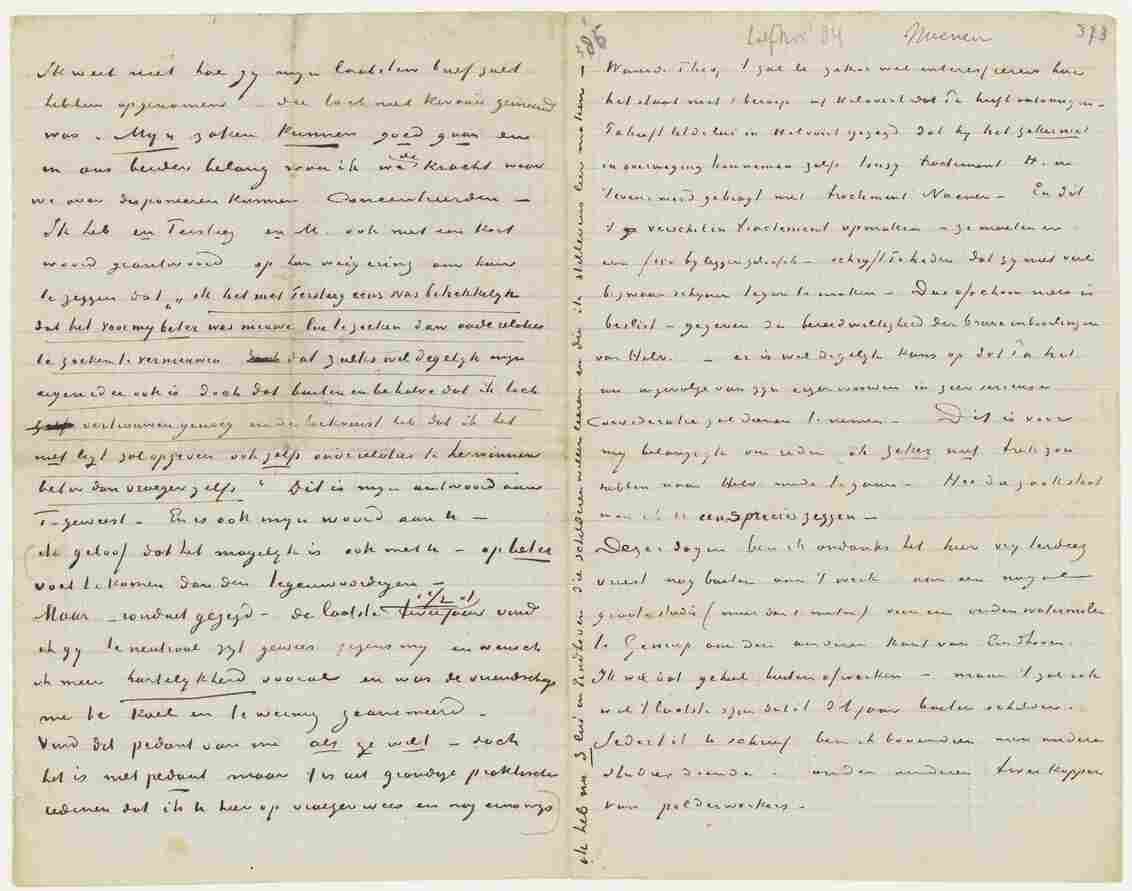 Ik weet niet hoe gy myn laatsten brief zult
hebben opgenomen – die toch niet kwaad gemeend
was. Myn zaken kunnen goed gaan en
in ons beider belang wou ik we de kracht waar
we over disponeeren kunnen Concentreerden –
Ik heb en Tersteeg en M. ook met een kort
woord geantwoord op hun weigering om hun
te zeggen dat „ik het met Tersteeg eens was betrekkelyk
dat het voor my beter was nieuwe lui te zoeken dan oude relaties
te zoeken te vernieuwen dat zulks wel degelyk myn
eigen idee ook is doch dat buiten en behalve dat ik toch
vertrouwen genoeg in de toekomst heb dat ik het
niet ligt zal opgeven ook zelfs oude relaties te herwinnen
beter dan vroeger zelfs" Dit is myn antwoord aan
T. geweest – En is ook myn woord aan U –
ik geloof dat het mogelyk is ook met U – op beter
voet te komen dan den tegenwoordigen –
Maar – ronduit gezegd – de laatste twee jaar vind
1 1/2 of
ik gy te neutraal zyt geweest jegens my en wensch
ik meer hartelykheid vooral en was de vriendschap
me te koel en te weinig geanimeerd.
Vind dit pedant van me als ge wilt – doch
het is niet pedant maar 't is uit grondige praktische
redenen dat ik U hier op vroeger wees en nog eenigs
ik heb nu 3 lui in Eindhoven die schilderen willen leeren en die ik stillevens leer maken –
'85
Liefhrs' 84 Nuenen 393
Waarde Theo, 't zal U zeker wel interesseeren hoe
het staat met 't beroep uit Helvoirt dat Pa heeft ontvangen –
Pa heeft tot de lui in Helvoirt gezegd dat hy het zeker niet
in overweging kan nemen zelfs tenzy tractement H. in
'evenwigt gebragt met tractement Nuenen – En dit
't verschil in tractement opmaken – ze moeten er
een f bij leggen geloof ik – schryft Pa heden dat zy niet veel
bezwaar schynen tegen te maken – Dus ofschoon niets is
beslist – gegeven de bereidwilligheid der brave inboorlingen
van Helv. – er is wel degelyk kans op dat Pa het
nu ingevolge van zyn eigen woorden in zeer serieuse
Consideratie zal dienen te nemen – Dit is voor
my belangryk om reden ik zeker niet trek zou
hebben naar Helv. mede te gaan – Hoe de zaak staat
kan ik U niet precies zeggen –
Dezer dagen ben ik ondanks het hier vry terdeeg
vriest nog buiten aan 't werk aan een nog al
groote studie (meer dan 1 meter) van een ouden watermolen
te Gennep aan den anderen kant van Eindhoven.
Ik wil dat geheel buiten afwerken – maar 't zal ook
wel 't laatste zyn dat ik dit jaar buiten schilder.
Sedert ik U schreef ben ik bovendien met andere
studies doende – onder anderen twee koppen
van polderwerkers –